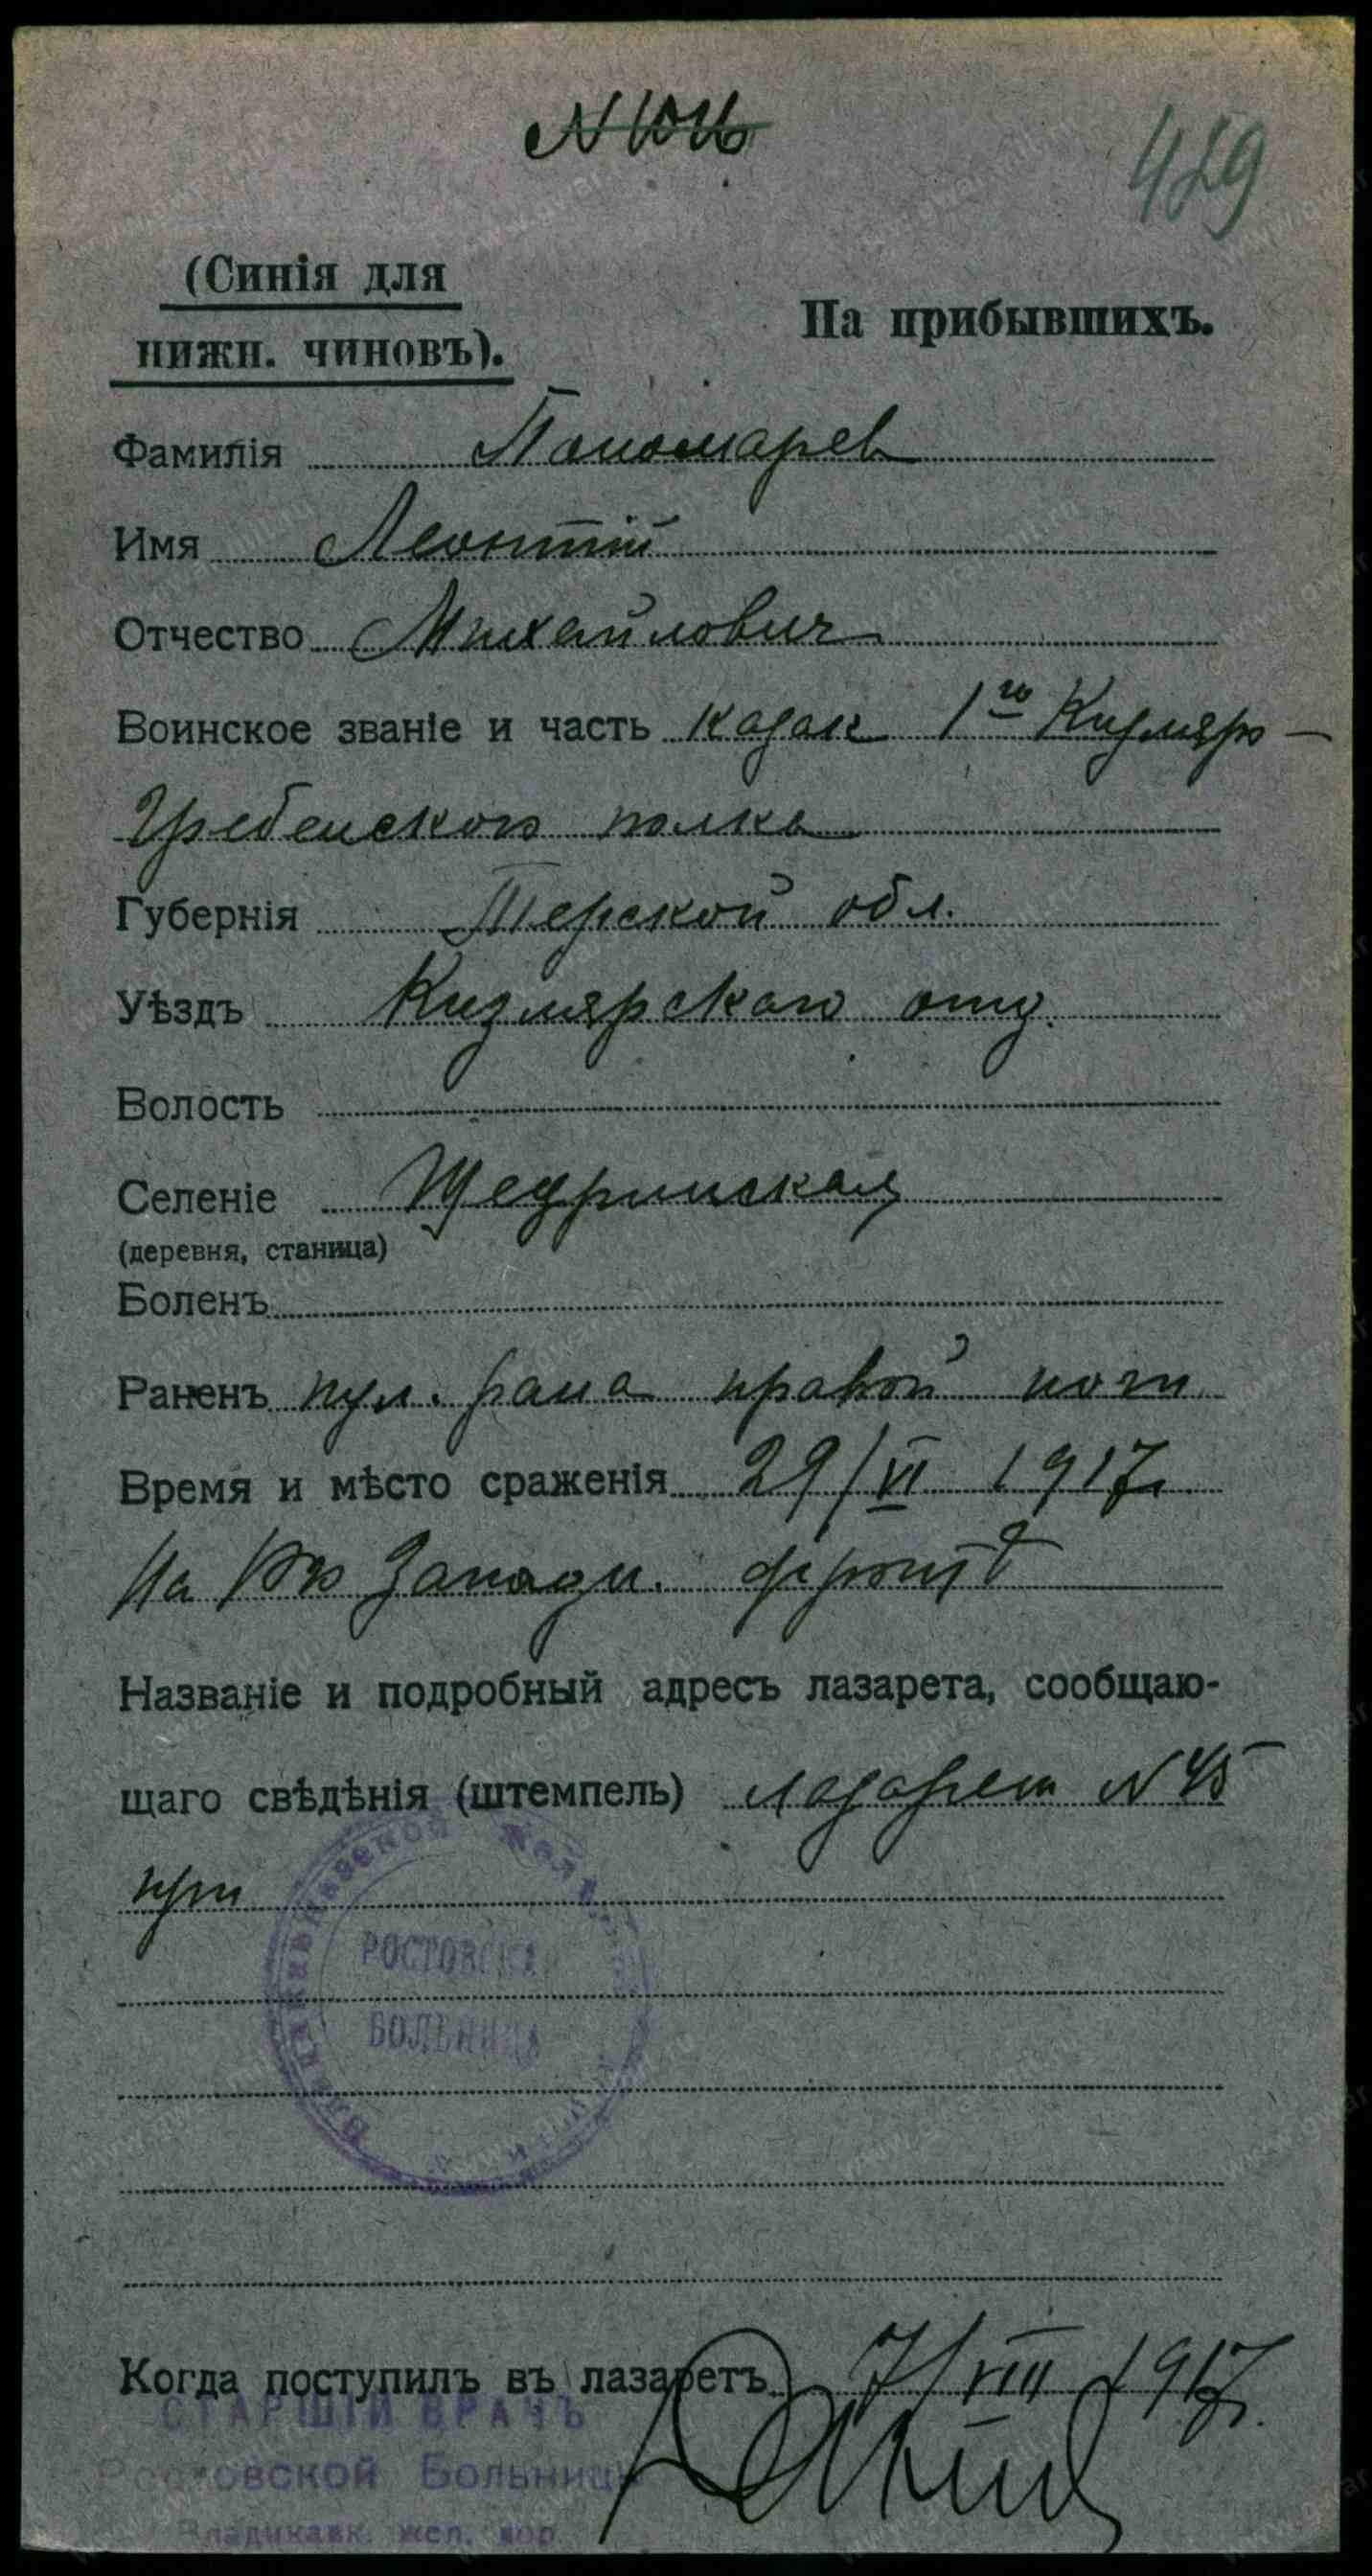 429
(Синія для
нижн. чиновъ).
На прибывшихъ.
Фамилія Пономарев
Имя Леонтій
Отчество Михайлович
Воинское званіе и часть казак 1го Кизляро-
Гребенского полка
Губернія Терской обл.
Уѣздъ Кизлярскаго отд.
Волость
Селеніе Щедринская
(деревня, станица)
Боленъ
Раненъ пул. рана правой ноги
Время и мѣсто сраженія 29/VI 1917г.
На Юго Западн. фронтѣ
Названіе и подробный адресъ лазарета, сообщаю-
щаго свѣдѣнія (штемпель) лазарет N 45
при
Владикавказской Желѣзной
РОСТОВСКАЯ
БОЛЬНИЦА
Когда поступилъ въ лазаретъ 7/VIII 1917г.
СТАРШІЙ ВРАЧЪ
Ростовской Больницы
Владикавк. жел. дор.